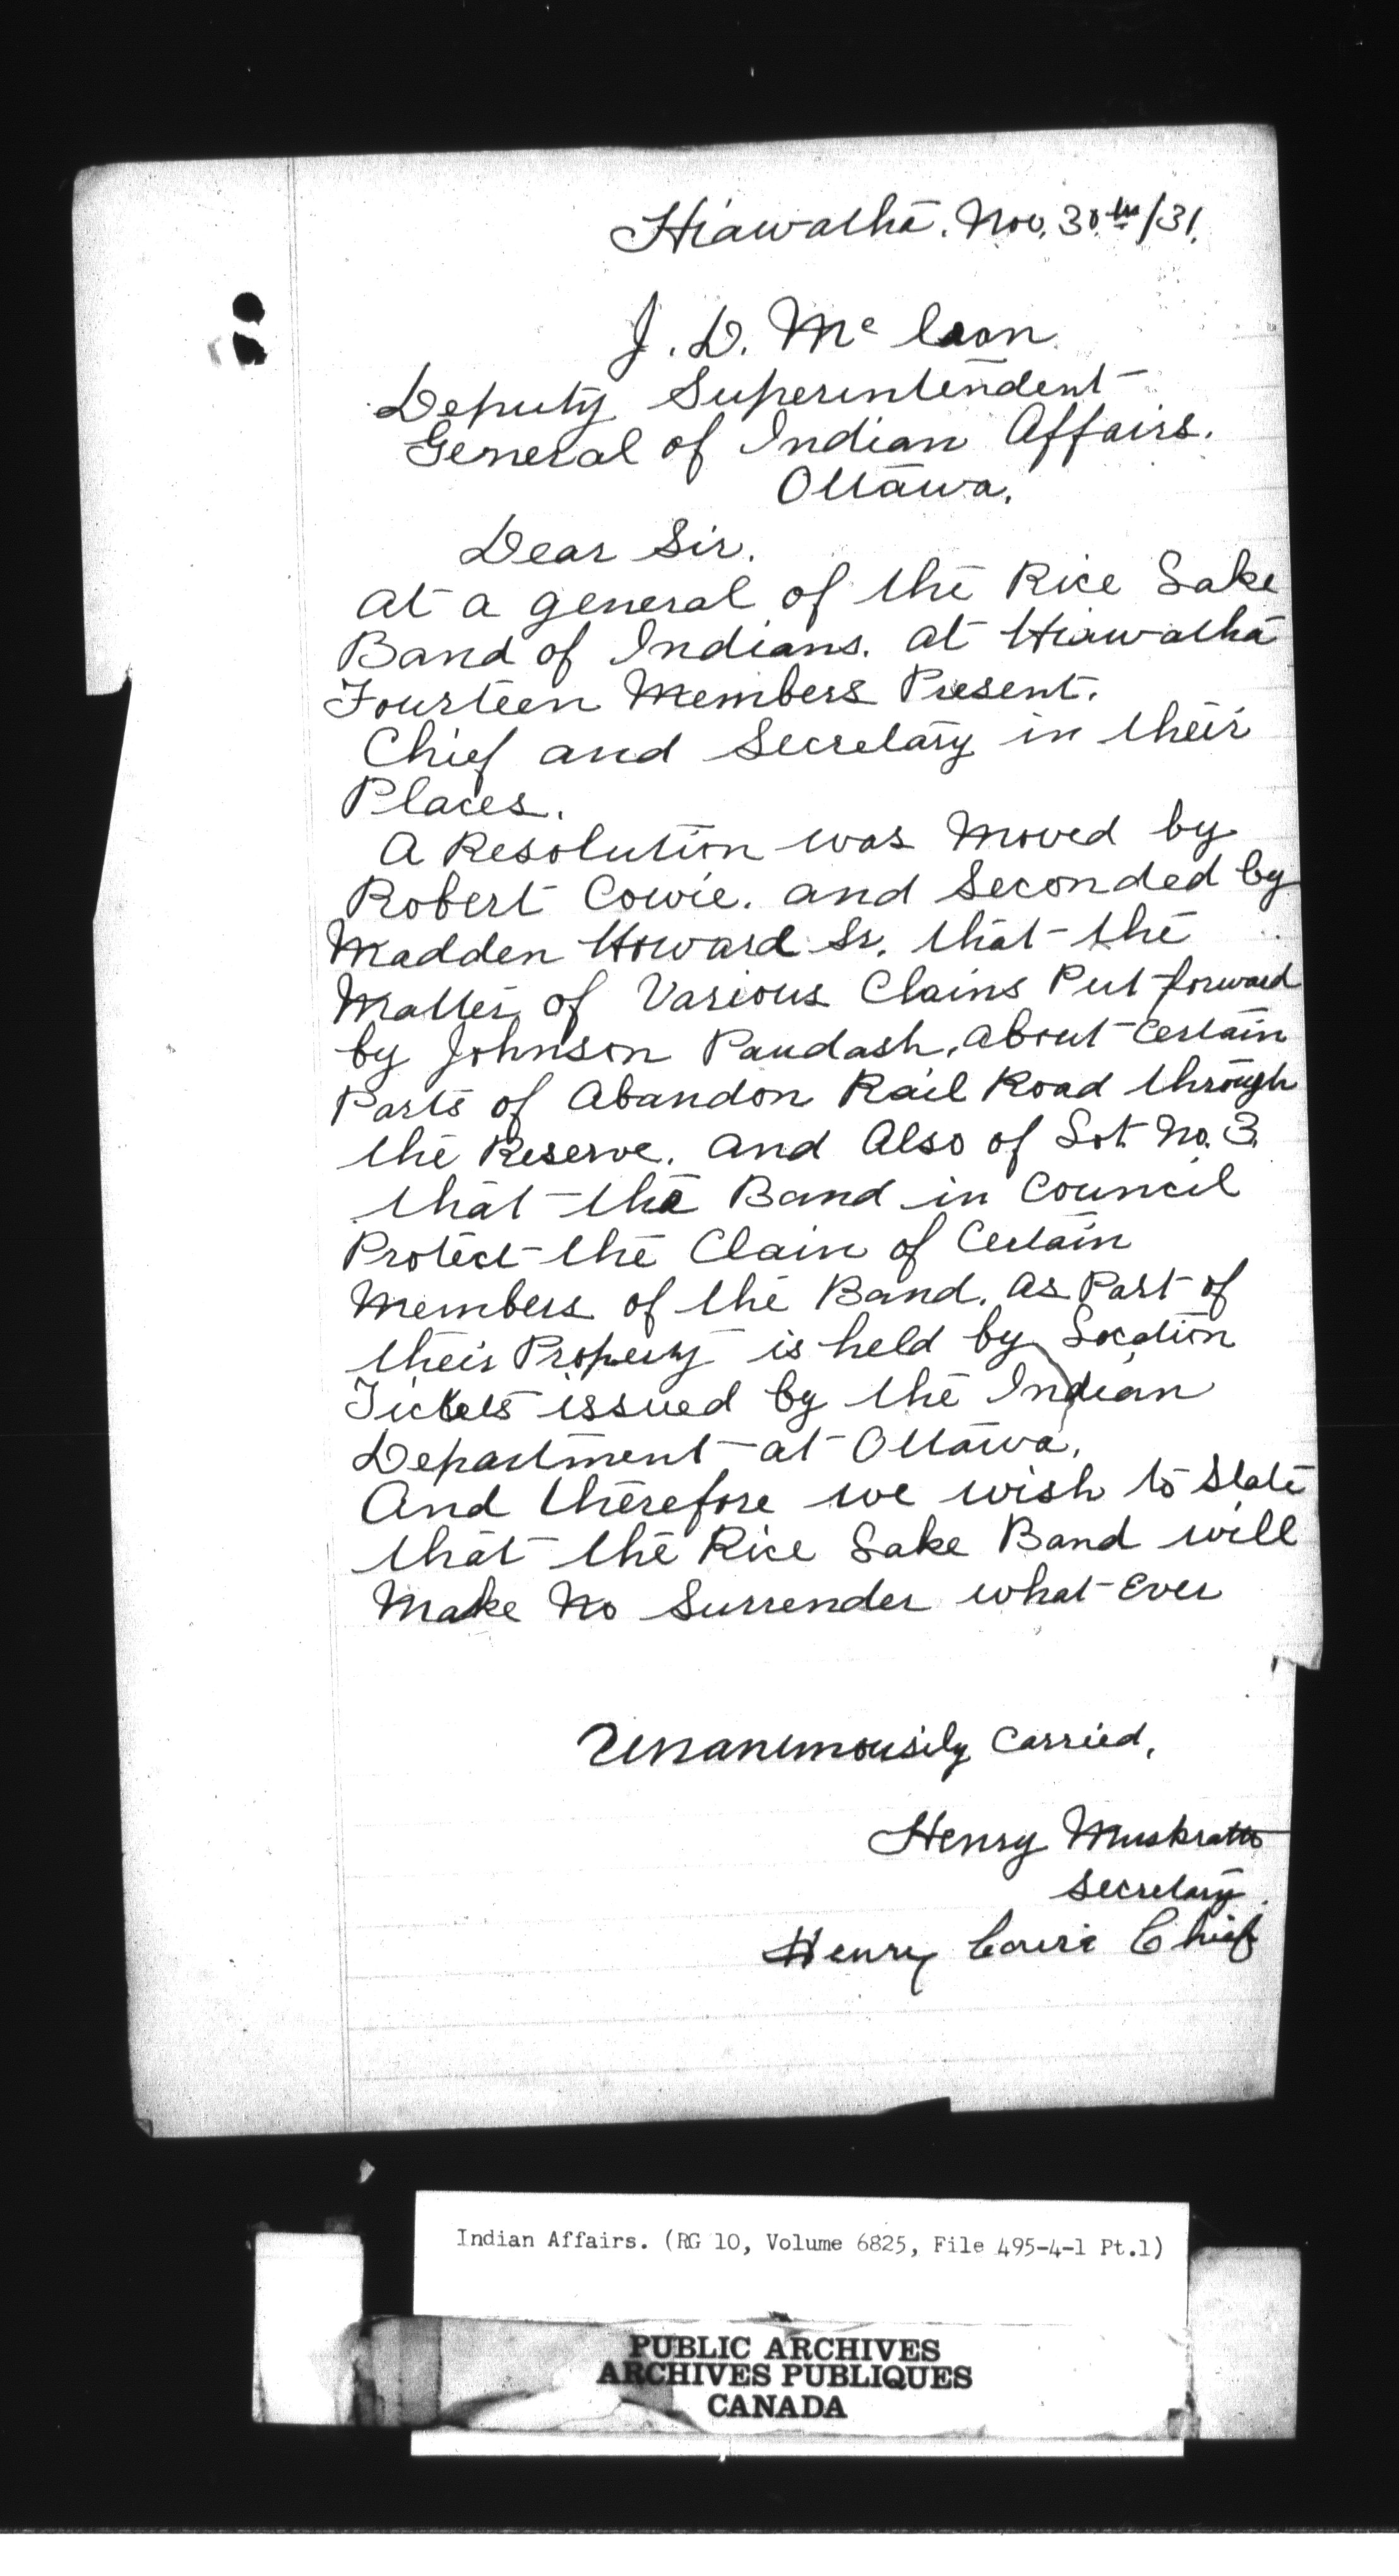 Hiawatha. Nov. 30th/31.
J. D. Mc lean
Deputy Superintendent
General of Indian Affairs.
Ottawa.
Dear Sir.
at a general of the Rice Lake
Band of Indians. at Hiawatha
Fourteen Members Present.
Chief and Secretary in their
Places.
A Resolution was Moved by
Robert Cowie. and Seconded by
Madden Howard Sr. that the
Matter of Various Clains Put forward
by Johnson Paudash, about Certain
Parts of Abandon Rail Road through
the Reserve. and Also of Lot No. 3.
that the Band in Council
Protect the Clain of Certain
Members of the Band. as Part of
their Property is held by Location
Tickets issued by the Indian
Department at Ottawa.
And therefore we wish to State
that the Rice Lake Band will
Make No Surrender what Ever
Unanumousily Carried,
Henry Muskratt
Secretary.
Henry Cowie Chief
Indian Affairs. (RG 10, Volume 6825, File 495-4-1 Pt.1)
PUBLIC ARCHIVES
ARCHIVES PUBLIQUES
CANADA